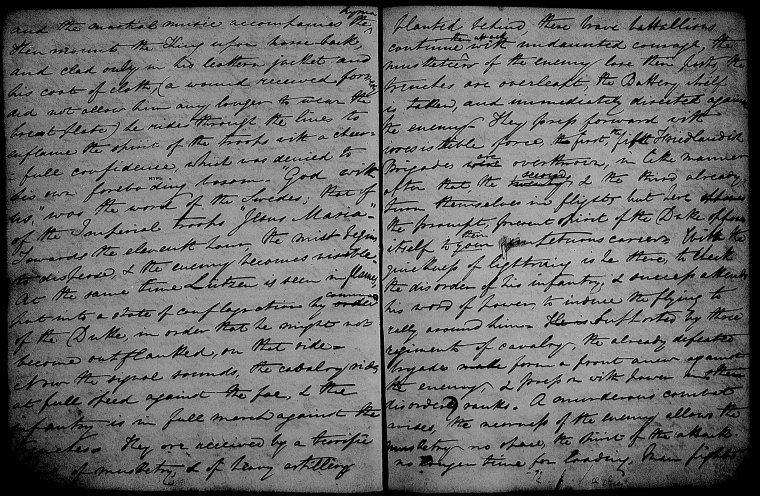 and the martial music accompanies the hymn
then mounts the King upon horse-back,
and clad only in his leathern jacket and
his coat of cloth, (a wound received formerly
did not allow him any longer to wear the
breast plate) he rides through the lines to
enflame the spirit of the troops with a cheer-
full confidence, which was denied to
his own foreboding bosom. "God with
us," was the word of the Swedes; that of
of the Imperial troops "Jesus Maria."
Towards the eleventh hour, the mist begins
to disperse, & the enemy becomes visible.
At the same time Lutzen is seen in flames,
put into a state of conflagration by order command
of the Duke, in order that he might not
become outflanked, on that side-
Now the signal sounds, the cavalry rides
at full speed against the foe, & the
infantry is in full march against the
trenches. They are received by a terrific
of musketry & of heavy artillery
planted behind, these brave battallions
continue the attack with undaunted courage, the
musketeers of the enemy lose their posts, the
trenches are overleapt, the Battery itself
is taken, and immediately directed against
the enemy. They press forward with
irresistible force, the first, the fifth Friedlandish
Brigades are overthrown, in like manner
after that, the second, & the third already
turn themselves in flight but here
the prompt, present spirit of the Duke opposes
itself to their With the
quickness of lightning is he there, to check
the disorder of his infantry, & success attends
his word of power, to induce the flying to
rally around him. Supported by three
regiments of cavalry, the already defeated
brigades make form a front anew against
the enemy, & press on with power
disordered ranks. A murderous combat
arises, the nearness of the enemy allows the
musketry no space, the spirit of the attack
no longer time for loading, man fights